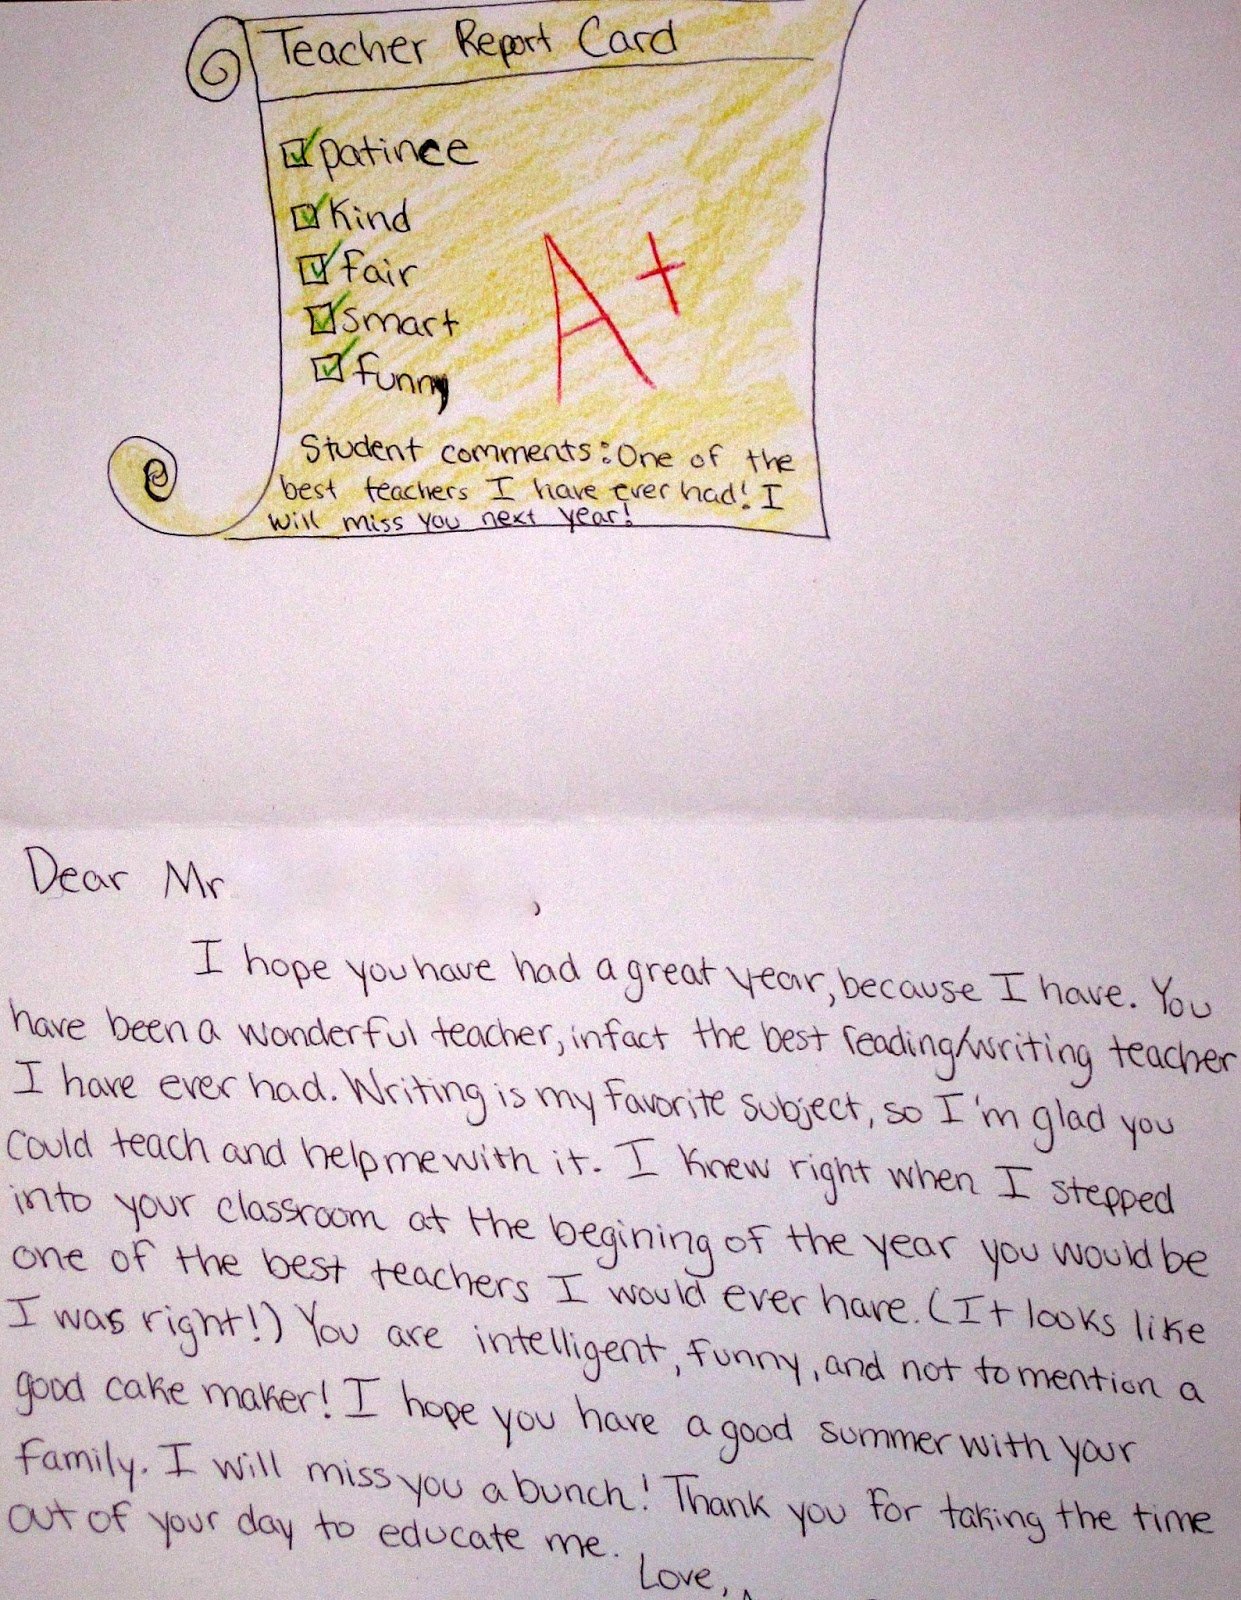 Teacher Report Card
patincee
Kind
fair
smart
funny
A+
Student comments: One of the
best teachers I have ever had! I
will miss you next year!
Dear Mr
,
I hope you have had a great year, because I have. You
have been a wonderful teacher, infact the best reading/writing teacher
I have ever had. Writing is my favorite subject, so I'm glad you
could teach and help me with it. I knew right when I stepped
into your classroom at the begining of the year you would be
one of the best teachers I would ever have. (It looks like
I was right!) You are intelligent, funny, and not to mention a
good cake maker! I hope you have a good summer with your
family. I will miss you a bunch! Thank you for taking the time
out of your day to educate me.
Love,